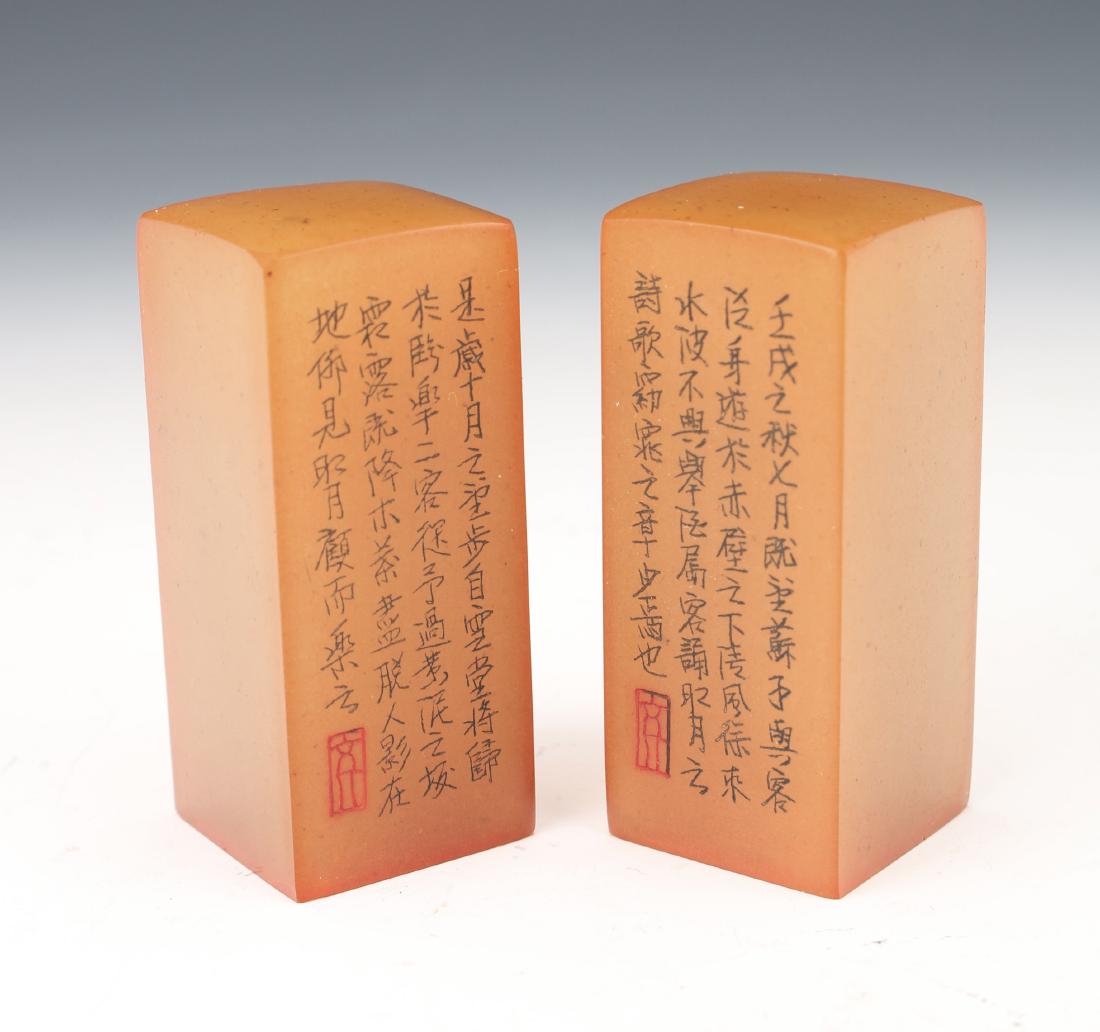 壬戌之秋七月既望蘇子與客
泛舟遊於赤壁之下清風徐來
水波不興舉酒屬客誦明月之
詩歌窈窕之章少焉也
是歲十月之望步自雪堂將歸
於臨皋二客從予過黃泥之坂
霜露既降木葉盡脫人影在
地仰見明月顧而樂之